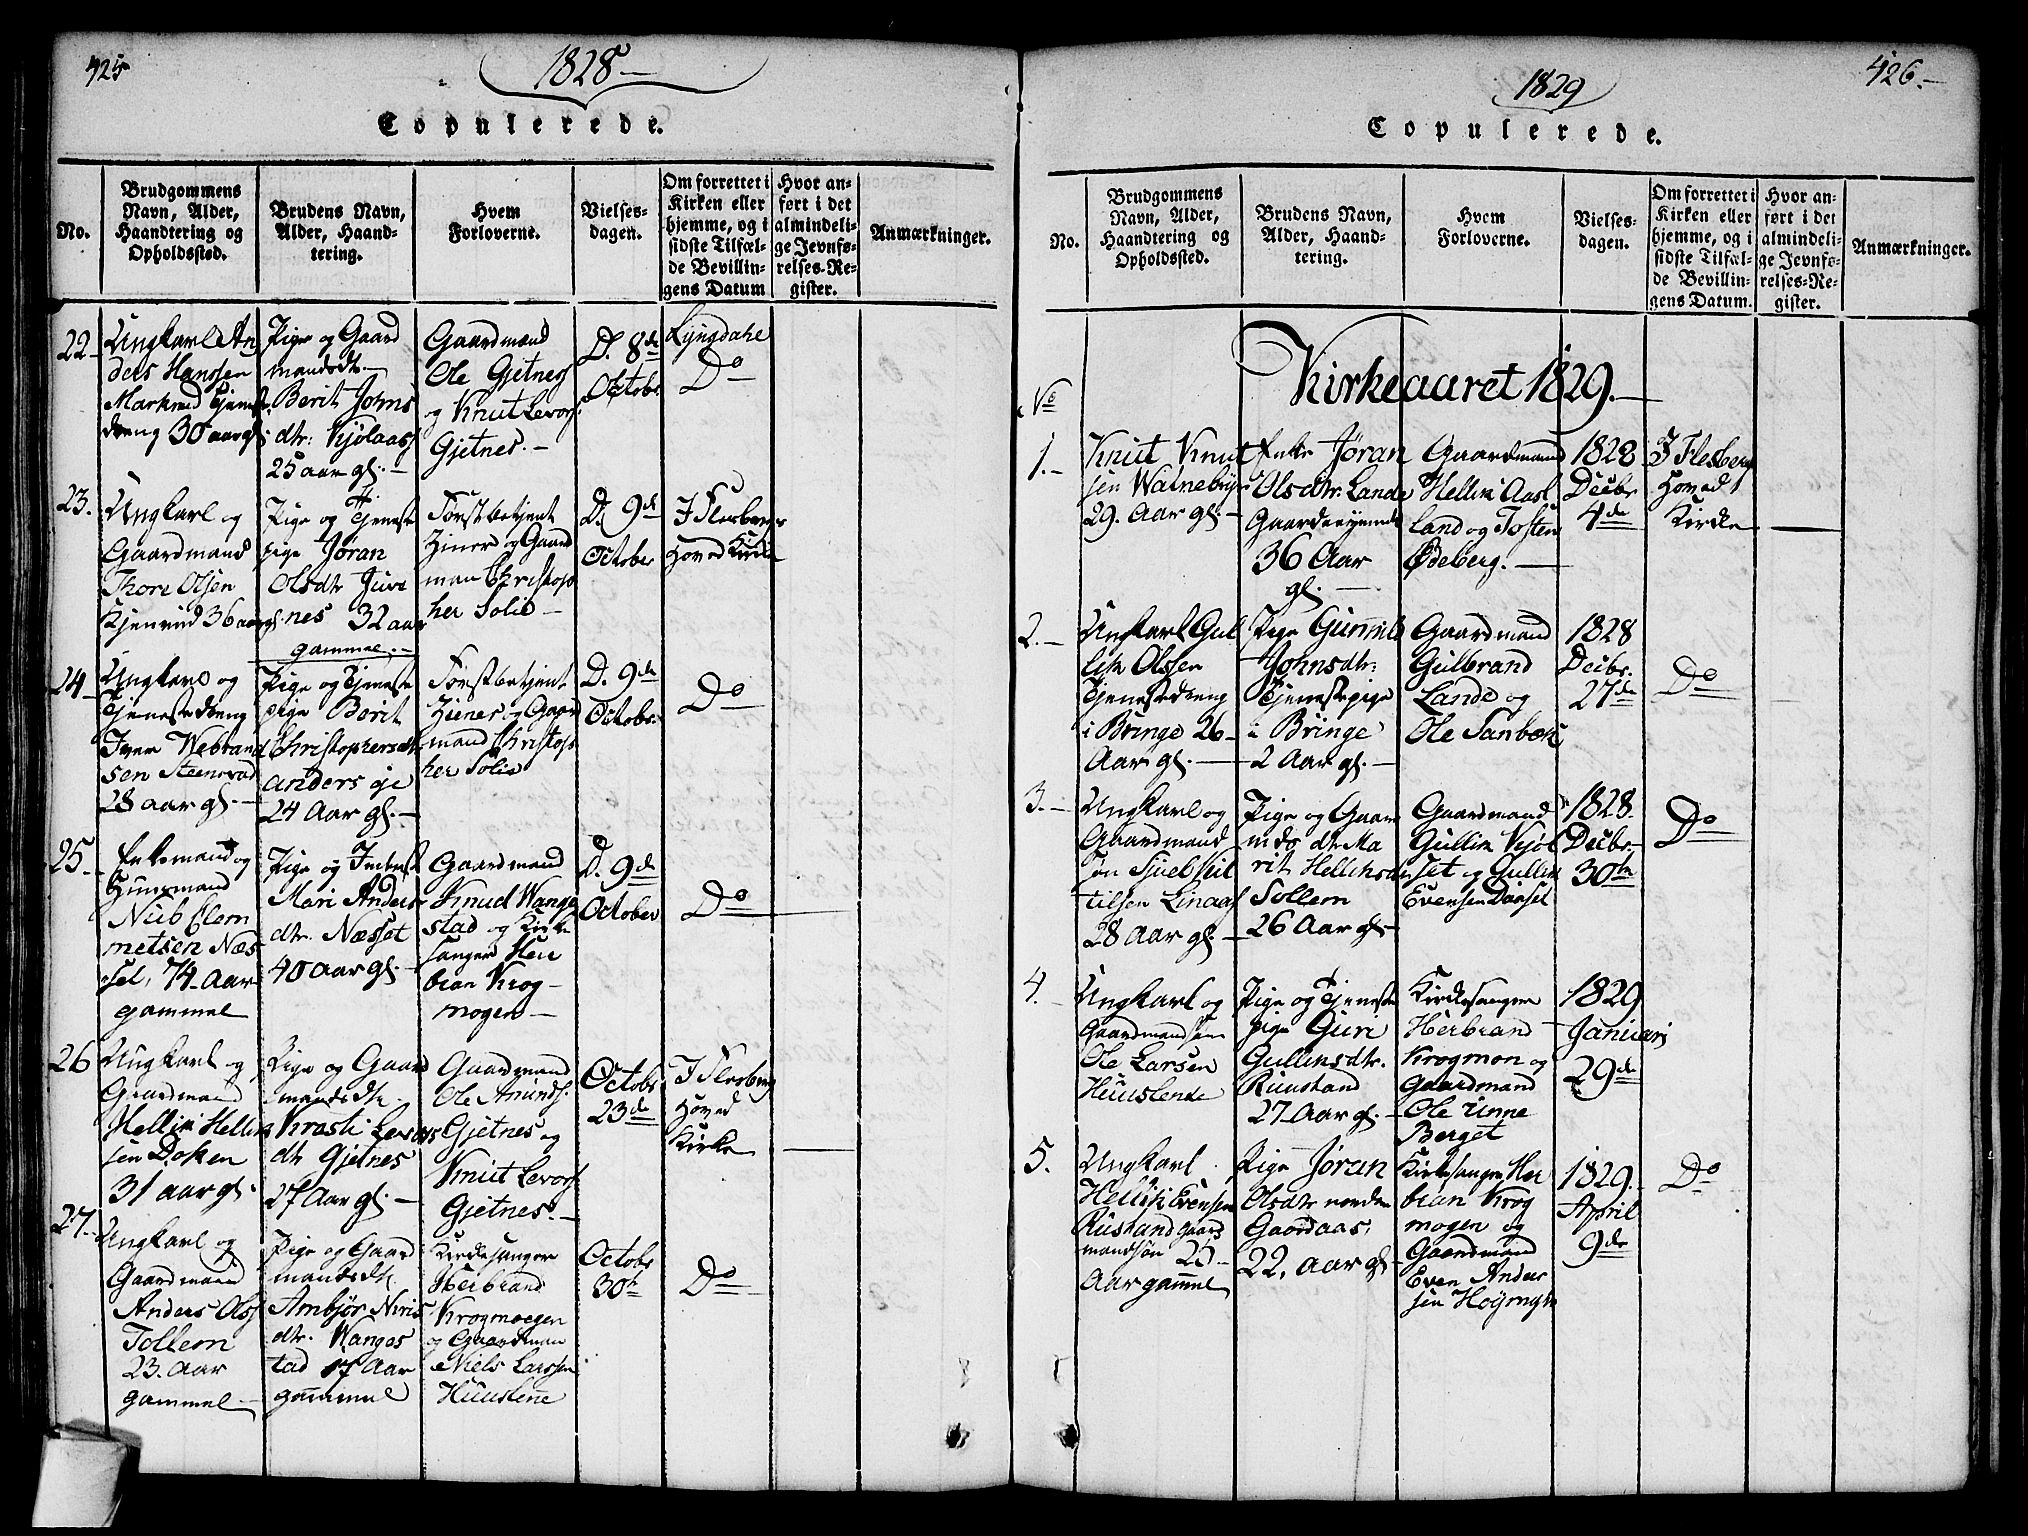 425
1828
Copulerede.
No.
Brudgommens
Navn, Alder,
Haandtering og
Opholdssted.
Brudens Navn,
Alder, Haand-
tering.
Hvem
Forloverne.
Vielses-
dagen.
Om forrettet i
Kirken eller
hjemme, og i
sidste Tilfæl-
de Bevillin-
gens Datum
Hvor an-
ført i det
almindeli-
ge Jevnfø-
relses-Re-
gister.
Anmærkninger.
22
Ungkarl An
ders Hanssen
Tjeneste
dreng 30 aar gl.
Pige og Gaard
mandsdtr.
Berit Johns
dtr: Kjølaas
25 aar gl.
Gaardmand
Ole Gjetnes
og Knut Levors.
Gjetnes.
D. 8de
Octobr.
Lyngdahl
Do
23.
Ungkarl og
Gaardmand
Thore Olsen
36 aar gl.
Pige og Tjeneste
pige Jøran
Olsdtr Juve
nes 32 aar
gammel.
Forstbetjent
Ziener og Gaard
man Christop
her Solie
D. 9de
October
I Flesberg
Hoved Kirke
24
Ungkarl og
Tjenestedreng
Iver Webrand
sen
28 aar gl.
Pige og Tjeneste
pige Berit
Christophersdtr
anders eje
24 Aar gl.
Forstbetjent
Ziener og Gaard
mand Christop
her Solie
D. 9de
Octobr.
Do
25.
Enkemand og
Huusmand
Clem
metsen Næs
set, 74 Aar
gammel
Pige og
Mari Anders
dtr. Næsset
40 aar gl.
Gaardmand
Knud Wange
stad og Kirke
sanger Her
bran Krog
mogen
D. 9de
October
Do
26
Ungkarl og
Gaardmand
Hellik Hellik
sen Doken
31 aar gl.
Pige og Gaard
mandsdtr.
Levors
dtr Gjetnes
27 Aar gl.
Gaardmand
Ole Amunds.
Gjetnes og
Knut Levors
Gjetnes.
Octobr
23de
I Flesberg
Hoved
Kirke
27
Ungkarl og
Gaardmand
Anders Olss
Tollern
23. Aar
gammel
Pige og Gaard
mandsdtr.
Ambjør
dtr. Wanges
tad 17 Aar
gammel
Kirkesanger
Herbrand
Krogmoegen
og Gaardman
Niels Larssen
Huuslene
Octobr
30te
Do
426.
1829
Copulerede.
No.
Brudgommens
Navn, Alder,
Haandtering og
Opholdssted.
Brudens Navn,
Alder, Haand-
tering.
Hvem
Forloverne.
Vielses-
dagen.
Om forrettet i
Kirken eller
hjemme, og i
sidste Tilfæl-
de Bevillin-
gens Datum.
Hvor an-
ført i det
almindeli-
ge Jevnfø-
relses-Re-
gister.
Anmærkninger.
Kirkeaaret 1829.
No
1.
Knut Knut
sen Watnebryn
29. Aar gl.
Enke Jøran
Olsdtr. Lande
36 Aar
gl.
Gaardmand
Hellik Aasl
land og Tosten
Ødeberg.
1828
Decbr
4de
I Flesberg
Hoved
Kirke
2.
Ungkarl Gul
lik Olssen
Tjenestedreng
i Bringe 26
Aar gl.
Pige Gunnild
Johnsdtr:
Tjenestepige
i Bringe
2 Aar gl.
Gaardmand
Gulbrand
Lande og
Ole Sanbek
1828
Decbr.
27de
Do
3.
Ungkarl og
Gaardmand
Linaas
28 Aar gl.
Pige og Gaar
mds dtr Ma
rit Helliksdtr
Sollem
26 Aar gl.
Gaardmand
Gullik Kjøl
set og Gullik
Evensen Daaset
1828.
Decbr.
30te
Do
4.
Ungkarl og
Gaardmandssøn
Ole Larsen
Huuslende
Pige og Tjeneste
pige Guri
Gulliksdtr.
Ruustand
27 Aar gl.
Kirkesanger
Herbrand
Krogmon og
Gaardmand
Ole Unne
Berget
1829
Januari
29de
5.
Ungkarl
Hellik Evensen
Rustand Gaard
mandsøn 25
Aar gammel
Pige Jøran
Olsdtr norden
Gaardaas,
22, aar gl.
Kirkesanger Her
bran Krog
mogen og
Gaardmand
Even Anders
sen Høymyr
1829.
April
9de
Do